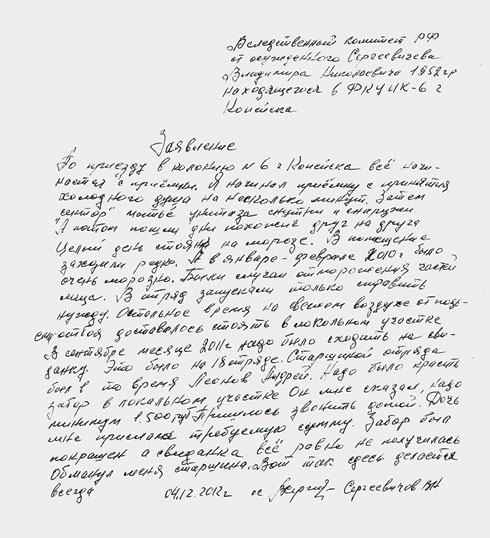 В следственный комитет РФ
от осужденного Сергеевичева
Владимира Николаевича 1958гр
находящегося в ФКУ ИК-6 г
Копейска
Заявление
По приезду в колонию N 6 г Копейска всё начи-
нается с приёмки. Я начинал приёмку с принятия
холодного душа на несколько минут. Затем
мытьё унитаза снутри и снаружи.
А потом пошли дни похожие друг на друга
Целый день стояли на морозе. В помещение
заходили редко. А в январе-феврале 2010г было
очень морозно. Были случаи отморожения частей
лица. В отряд запускали только справить
нужду. Остальное время на свежем воздухе
доставалось стоять в локальном участке
В сентябре месяце 2011г надо было сходить на сви-
данку. Это было на 18 отряде. Старшиной отряда
был в то время Леонов Андрей. Надо было красить
забор в локальном участке Он мне сказал, надо
минимум 1.500 руб Пришлось звонить домой. Дочь
мне прислала требуемую сумму. Забор был
покрашен а свиданка всё равно не получилась
Обманул меня старшина. Вот так здесь делается
всегда
04.12.2012г ос Сергеевичев ВН